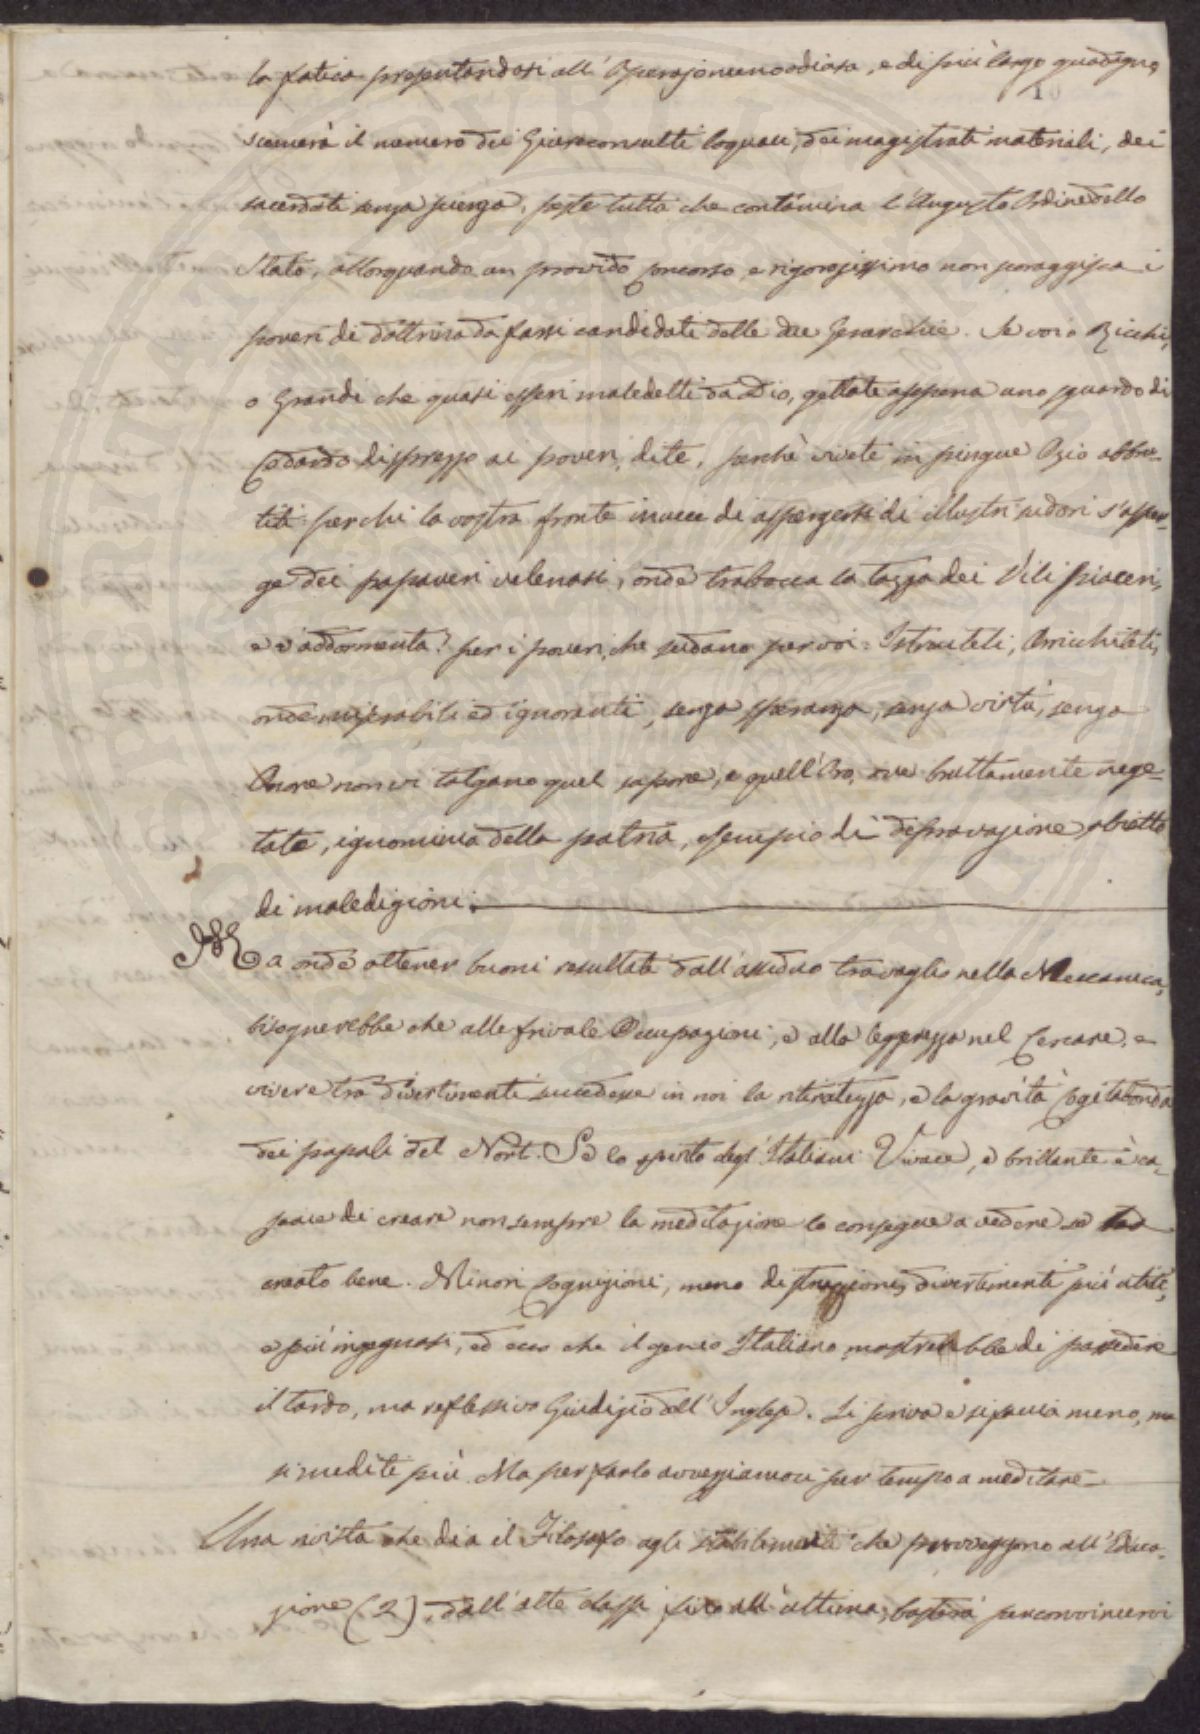 la fatica presentandosi all'Operajo meno odiosa, e di più largo guadagno,
10
scemerà il numero dei Giureconsulti loquaci, dei magistrati materiali, dei
sacerdoti senza scienza, peste tutta che contamina l'Augusto Ordine dello
Stato, allorquando un provido Concorso, e rigorosissimo non scoraggisca i
poveri di dottrina da farsi candidati delle due Gerarchie. Se voi o Ricchi,
o Grandi che quasi esseri maledetti da Dio, gettate appena uno sguardo di
Codardo disprezzo ai poveri, dite, perchè vivete in pingue Ozio abbru-
titi: perchè la vostra fronte invece di aspergersi di illustri sudori s'asper-
ge dei papaveri velenosi, onde trabocca la tazza dei Vili piaceri,
e s'addormenta? per i poveri, che sudano per voi: Istruiteli, Arricchiteli,
onde miserabili ed ignoranti, senza speranza, senza virtù, senza
Onore non vi tolgano quel sapore, e quell'Oro, ove bruttamente vege-
tate, ignominia della patria, esempio di depravazione obietto
di maledizioni.
Ma onde ottener buoni resultati dall'assiduo travaglio nella Meccanica,
bisognerebbe che alle frivole Occupazioni, e alla leggerezza nel Cercare, e
vivere tra divertimenti succedesse in noi la ritiratezza, e la gravità Cogitabonda
dei popoli del Nort. Se lo spirito degl'Italiani Vivace, e brillante è ca-
pace di creare non sempre la meditazione lo consegue a vedere se
creato bene. Minori Cognizioni, meno distrazioni, divertimenti più utili,
e più ingegnosi, ed ecco che il genio Italiano mostrerebbe di possedere
il tardo, ma reflessivo Giudizio dell'Inglese. Si scriva e si faccia meno, ma
si mediti più. Ma per farlo avvezziamoci per tempo a meditare
Una rivista che dia il Filosofo agli stabilimenti che provveggono all'Educa-
zione (2), dall'alte classi fino all'ultima, basterà per convincervi